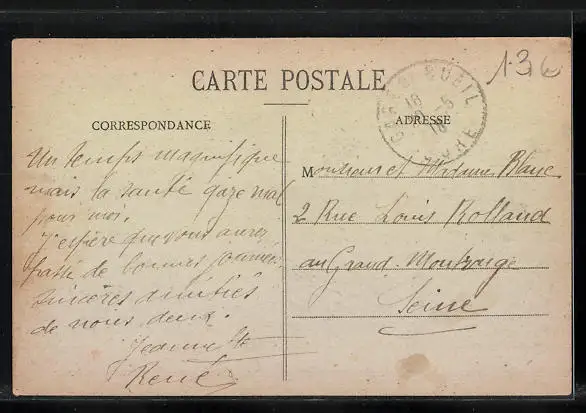 13 €
CARTE POSTALE
CORRESPONDANCE
ADRESSE
Un temps magnifique
mais la santé gaze mal
pour moi.
J'espère que vous aurez
passé de bonnes journées.
Sincères amitiés
de nous deux.
Jeannette
René
Monsieur et Madame Blaise
2 Rue Louis Rolland
au Grand-Montrouge
Seine